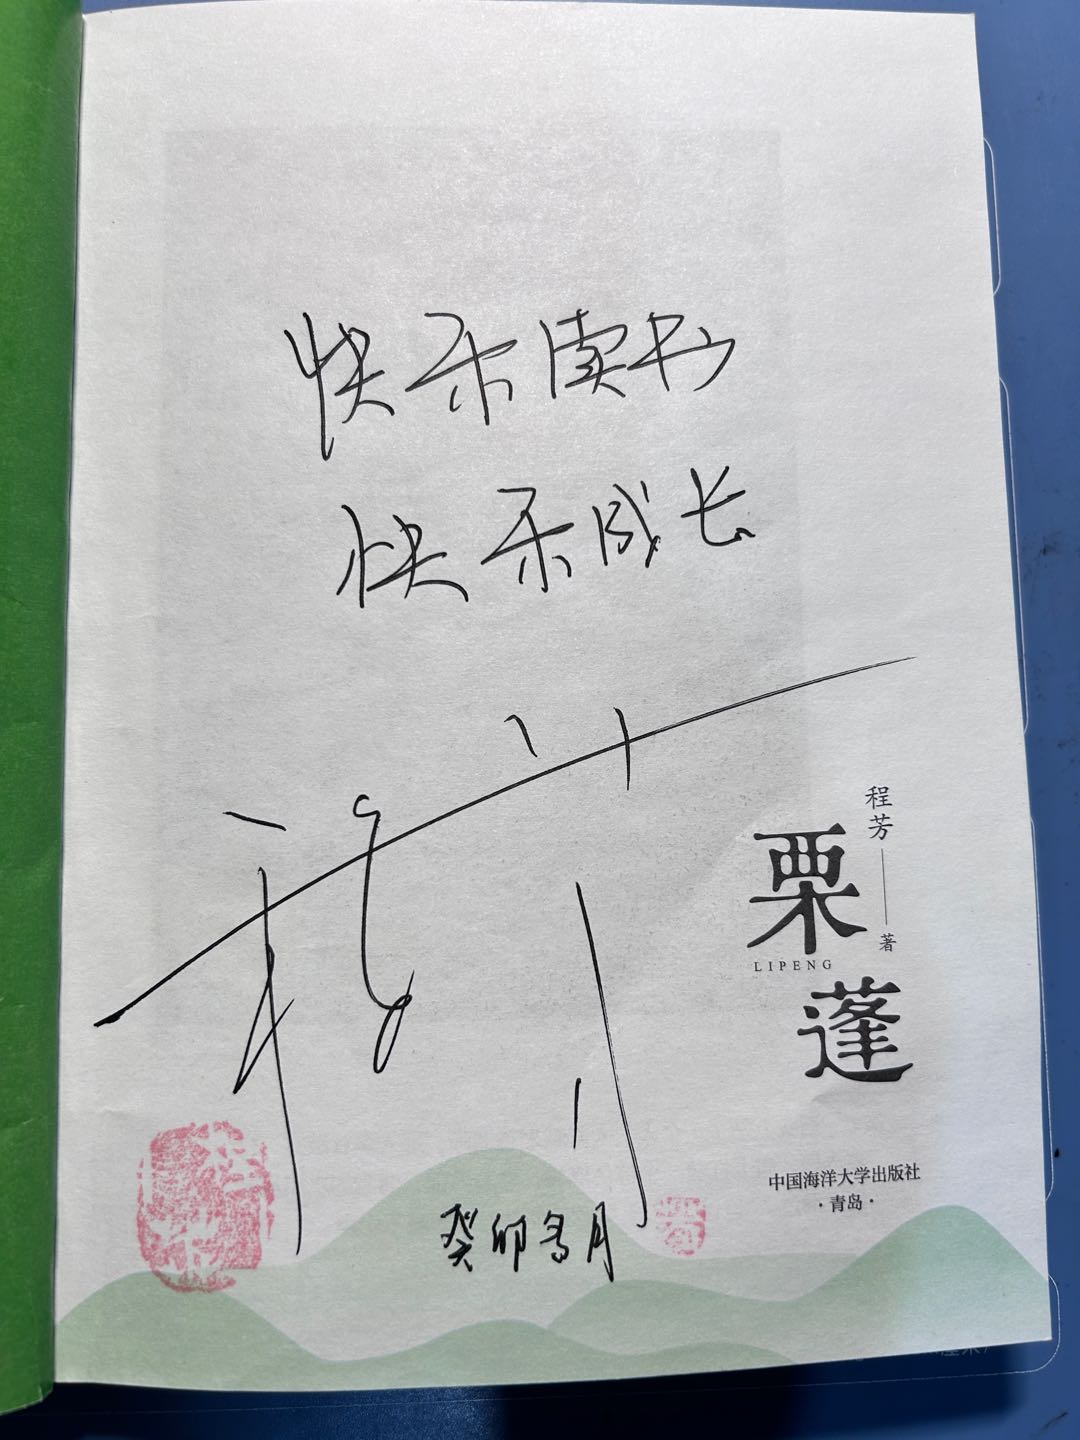 快乐读书
快乐成长
程芳
癸卯冬月
程芳
著
栗
LIPENG
蓬
中国海洋大学出版社
·青岛·